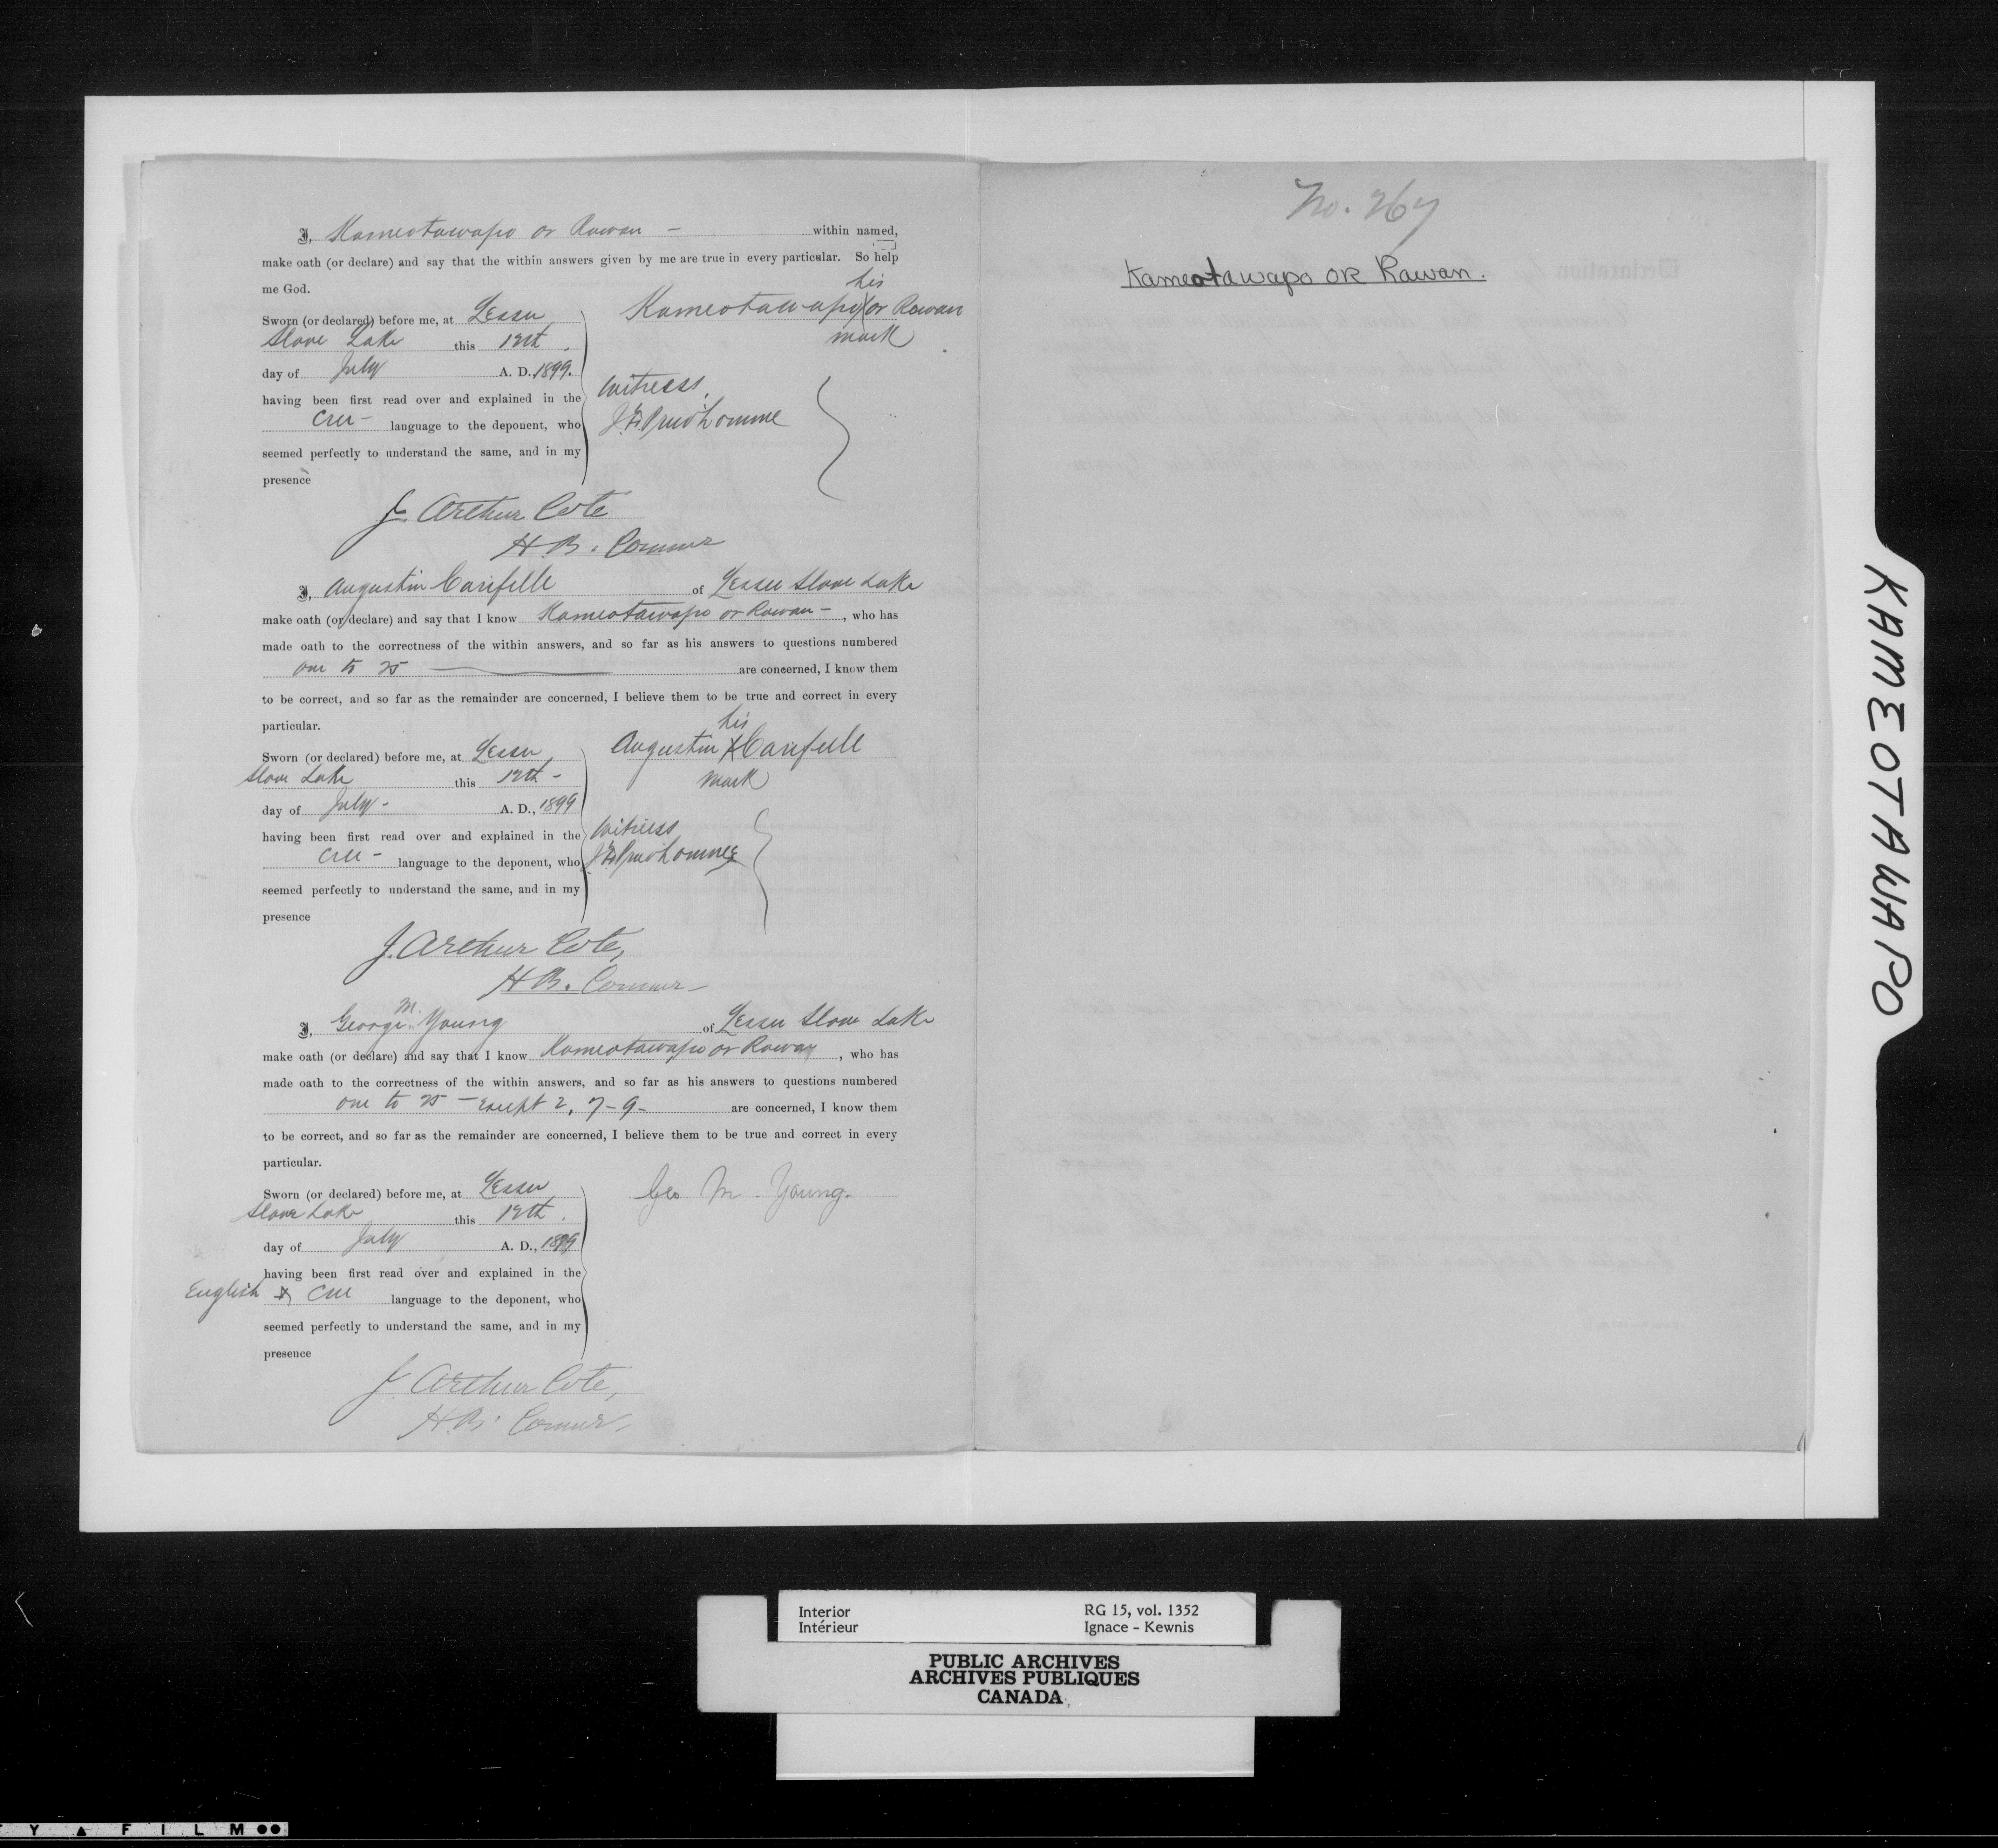 I, Kameotawapo or Rawan – within named,
make oath (or declare) and say that the within answers given by me are true in every particular. So help
me God.
Sworn (or declared) before me, at Lesser
Slave Lake this 12th.
day of July A. D. 1899.
having been first read over and explained in the
Cree – language to the deponent, who
seemed perfectly to understand the same, and in my
presence
his
Kameotawapo X or Rawan
mark
Witness,
Prudhomme
J. Arthur Cote
H.B. Commr
I, Augustin Carifelle of Lesser Slave Lake
make oath (or declare) and say that I know Kameotawapo or Rawan –, who has
made oath to the correctness of the within answers, and so far as his answers to questions numbered
one to 25 are concerned, I know them
to be correct, and so far as the remainder are concerned, I believe them to be true and correct in every
particular.
Sworn (or declared) before me, at Lesser
Slave Lake this 12th –
day of July – A. D., 1899
having been first read over and explained in the
Cree – language to the deponent, who
seemed perfectly to understand the same, and in my
presence
his
Augustin X Carifelle
mark
Witness
Prudhomme
J. Arthur Cote,
H.B. Commr –
I, George M. Young of Lesser Slave Lake
make oath (or declare) and say that I know Kameotawapo or Rawan, who has
made oath to the correctness of the within answers, and so far as his answers to questions numbered
one to 25 – except 2, 7 – 9 – are concerned, I know them
to be correct, and so far as the remainder are concerned, I believe them to be true and correct in every
particular.
Sworn (or declared) before me, at Lesser
Slave Lake this 12th.
day of July A. D., 1899
having been first read over and explained in the
English & Cree language to the deponent, who
seemed perfectly to understand the same, and in my
presence
Geo M. Young.
J. Arthur Cote,
H.B. Commr.
No. 267
Kameotawapo OR Rawan.
KAMEOTAWAPO
Interior RG 15, vol. 1352
Intérieur Ignace - Kewnis
PUBLIC ARCHIVES
ARCHIVES PUBLIQUES
CANADA
Y A FILM